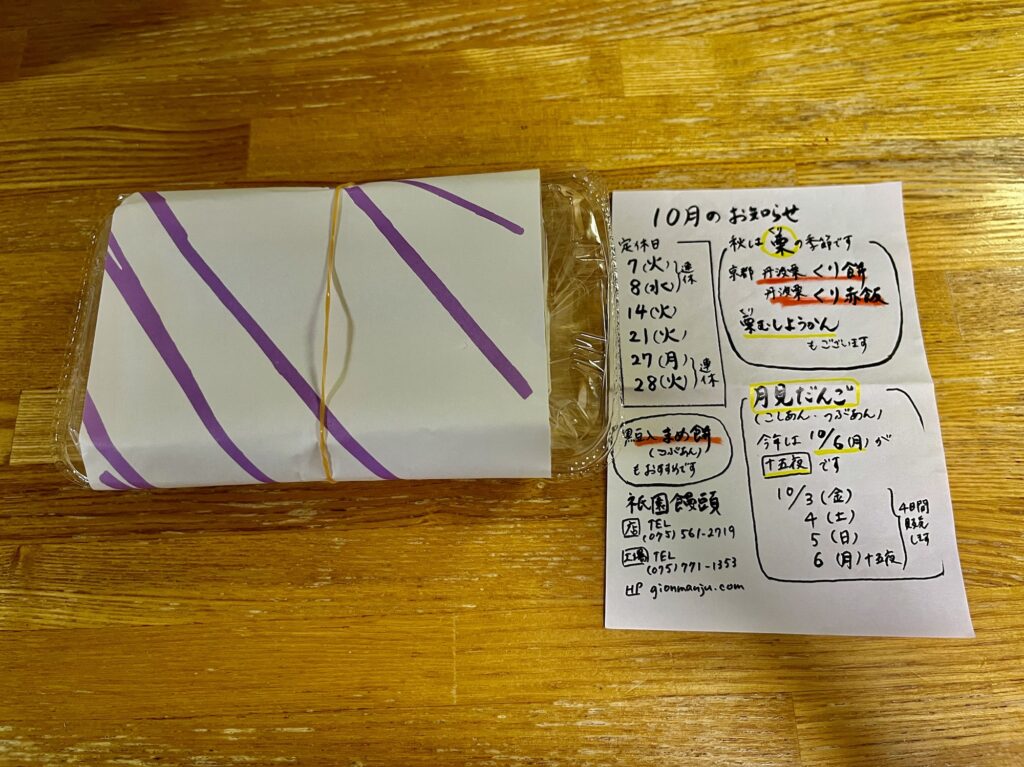 10月のお知らせ
定休日
7(火)
8(水)
連休
14(火)
21(火)
27(月)
28(火)
連休
秋は栗の季節です
くり
京都 丹波栗 くり餅
丹波栗 くり赤飯
くり
栗むしようかん
もございます
黒豆入 まめ餅
(つぶあん)
もおすすめです
月見だんご
(こしあん・つぶあん)
今年は 10/6(月)が
十五夜 です
10/3(金)
4(土)
5(日)
6(月)十五夜
4日間
販売
します
祇園饅頭
店 TEL
(075)561-2719
工場 TEL
(075)771-1353
HP gionmanju.com